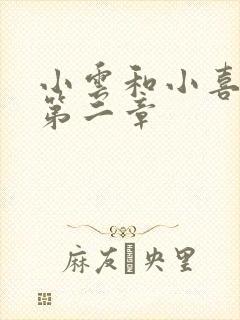 小雲和小喜
第二章
麻友 央里